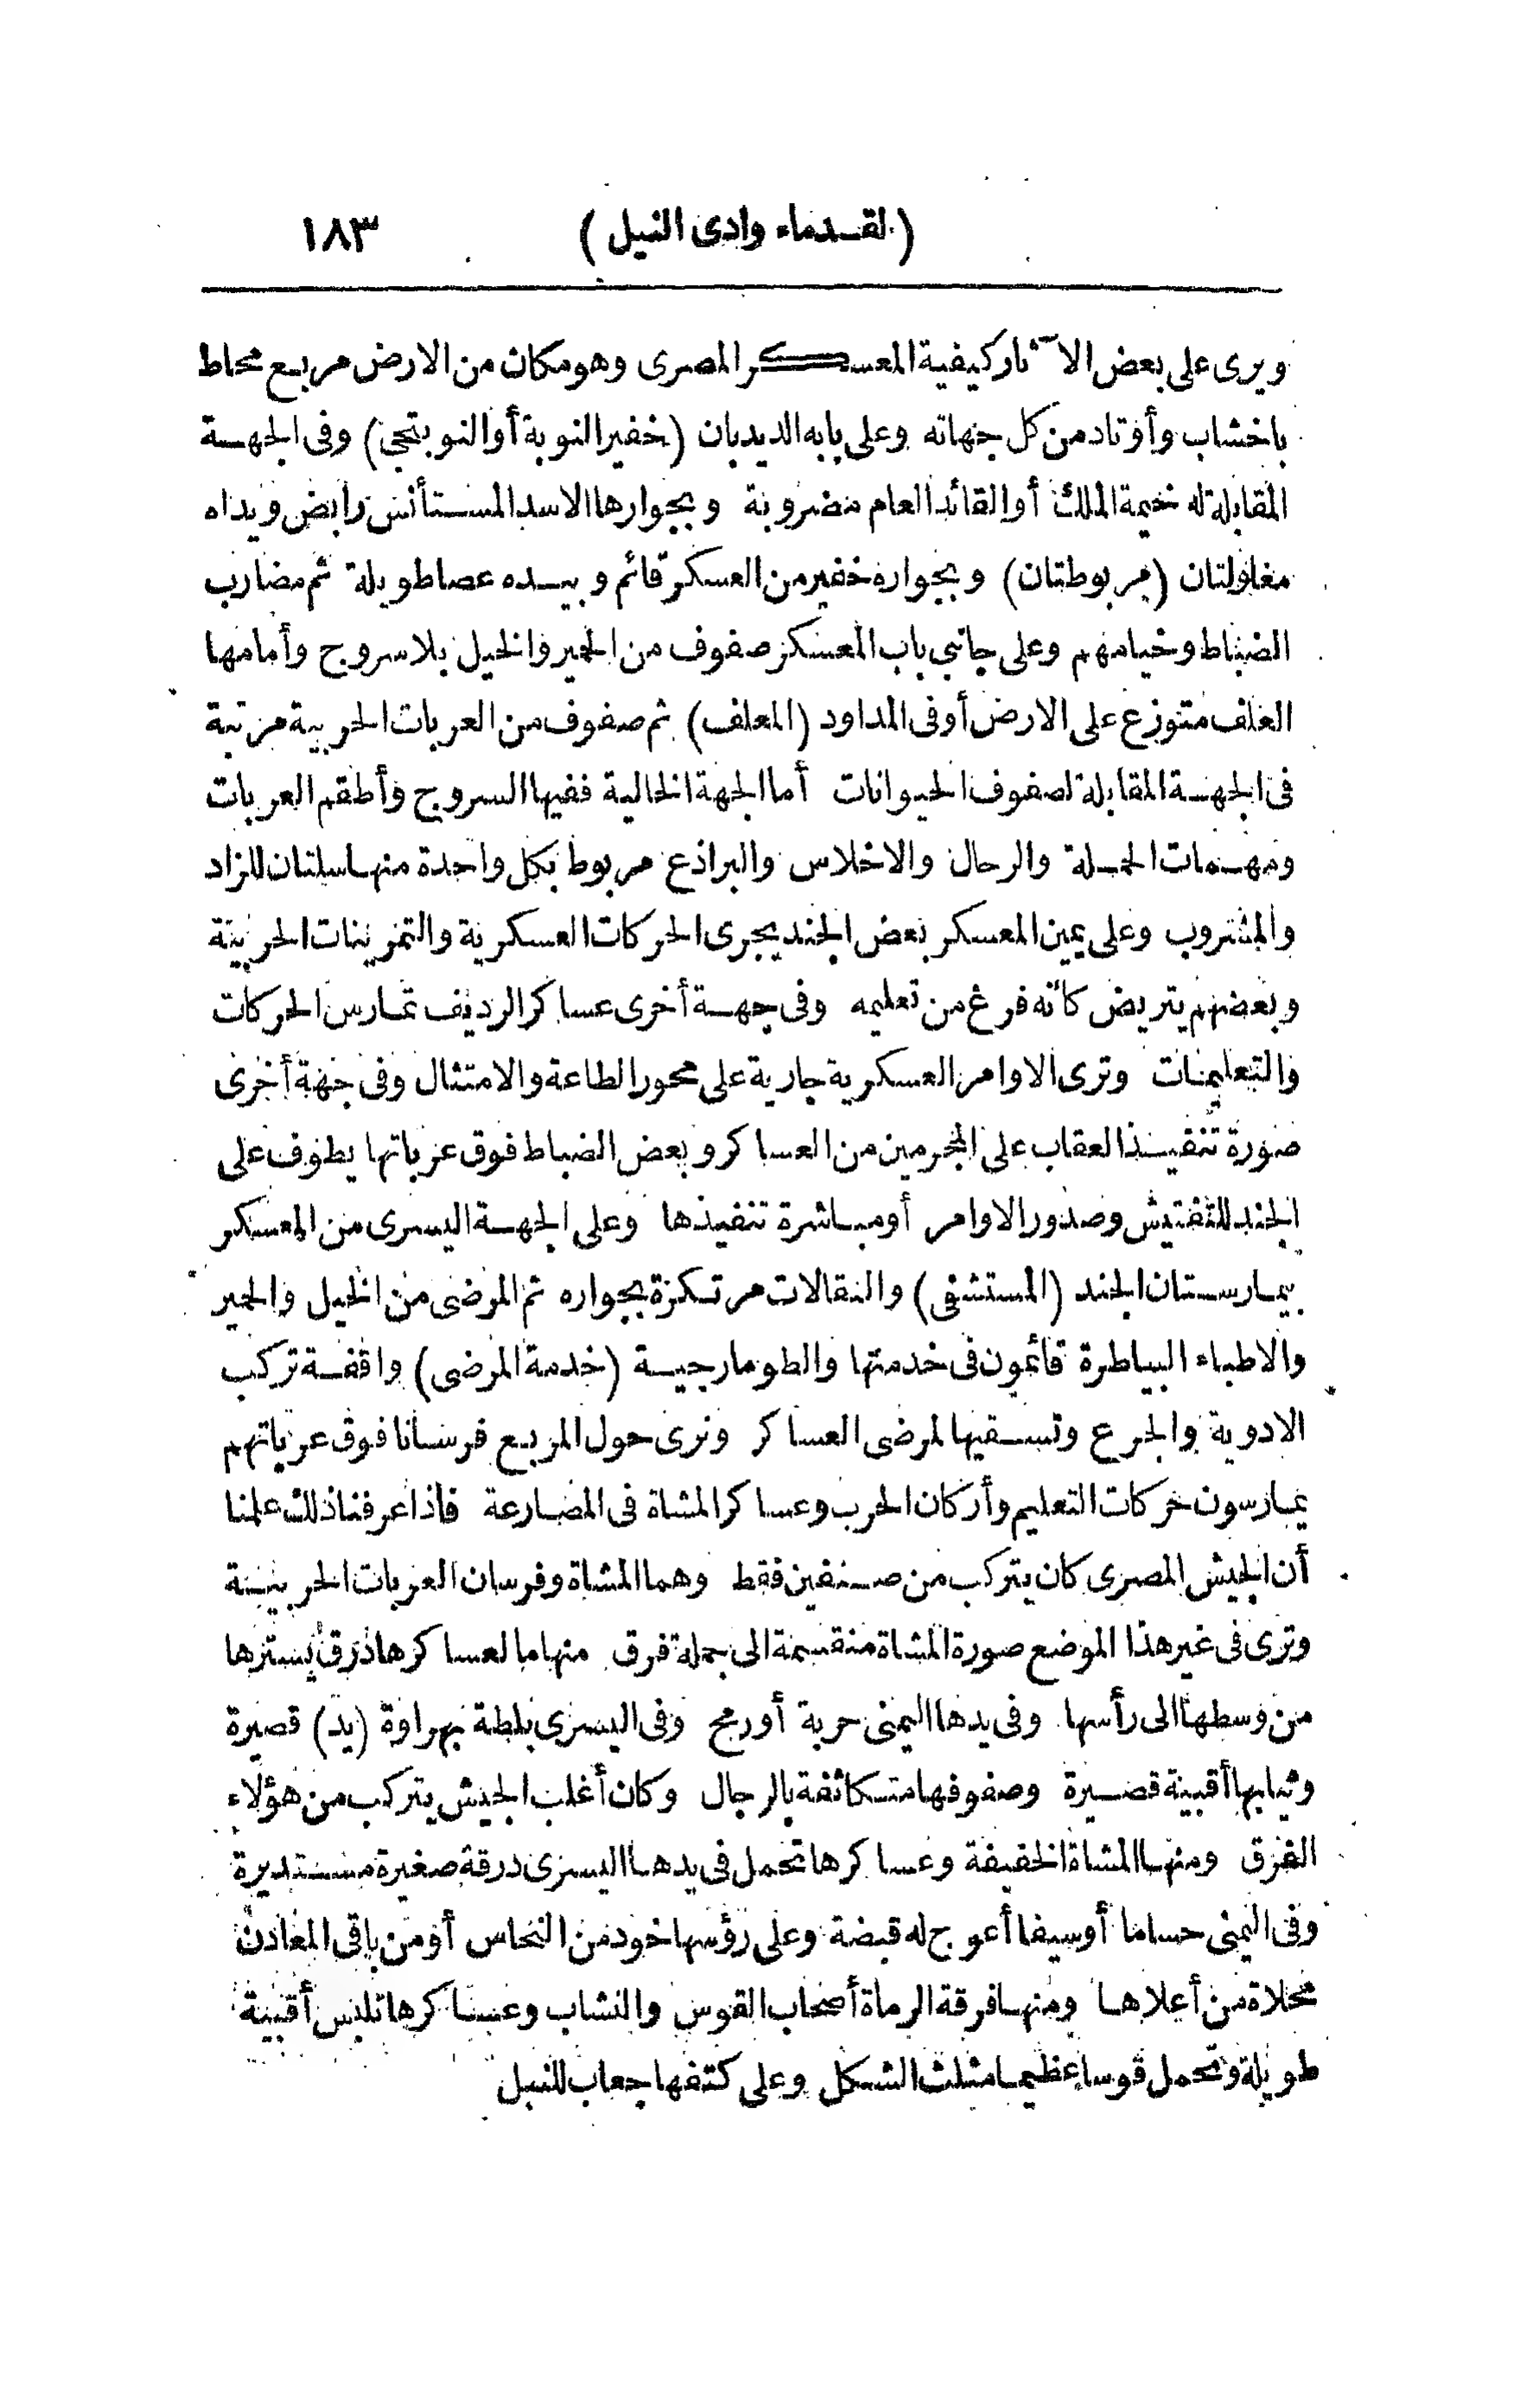 (لقدماء وادى النيل) ١٨٣
ويرى على بعض الآثار كيفية المعسكر المصرى وهو مكان من الارض مربع محاط
باخشاب وأوتاد من كل جهاته وعلى بابه الديدبان (خفير النوبة أو النوبتجى) وفى الجهة
المقابلة له خيمة الملك أو القائد العام مضروبة وبجوارها الاسد المستأنس رابض ويداه
مغلولتان (مربوطتان) وبجواره خفير من العسكر قائم وبيده عصا طويلة ثم مضارب
الضباط وخيامهم وعلى جانبى باب المعسكر صفوف من الحمير والخيل بلا سروج وأمامها
العلف متوزع على الارض أو فى المداود (المعلف) ثم صفوف من العربات الحربية مرتبة
فى الجهة المقابلة لصفوف الحيوانات أما الجهة الخالية ففيها السروج وأطقم العربات
ومهمات الحملة والرحال والاخلاس والبراذع مربوط بكل واحدة منها سلتان للزاد
والمشروب وعلى يمين المعسكر بعض الجند يجرى الحركات العسكرية والتمرينات الحربية
وبعضهم يتريض كأنه فرغ من تعليمه وفى جهة أخرى عساكر الرديف تمارس الحركات
والتعليمات وترى الاوامر العسكرية جارية على محور الطاعة والامتثال وفى جهة أخرى
صورة تنفيذ العقاب على المجرمين من العساكر وبعض الضباط فوق عرباتها يطوف على
الجند للتفتيش وصدور الاوامر أو مباشرة تنفيذها وعلى الجهة اليسرى من المعسكر
بيمارستان الجند (المستشفى) والنقالات مرتكزة بجواره ثم المرضى من الخيل والحمير
والاطباء البياطرة قائمون فى خدمتها والطومارجية (خدمة المرضى) واقفة تركب
الادوية والجرع وتسقيها لمرضى العساكر ونرى حول المربع فرسانا فوق عرباتهم
يمارسون حركات التعليم وأركان الحرب وعساكر المشاة فى المصارعة فاذا عرفنا ذلك علمنا
أن الجيش المصرى كان يتركب من صنفين فقط وهما المشاة وفرسان العربات الحربية
وترى فى غير هذا الموضع صورة المشاة منقسمة الى جملة فرق منها ما لعساكرها درق يسترها
من وسطها الى رأسها وفى يدها اليمنى حربة أو رمح وفى اليسرى بلطة بهراوة (يد) قصيرة
وثيابها أقبية قصيرة وصفوفها متكاثفة بالرجال وكان أغلب الجيش يتركب من هؤلاء
الفرق ومنها المشاة الخفيفة وعساكرها تحمل فى يدها اليسرى درقة صغيرة مستديرة
وفى اليمنى حساما أو سيفا أعوج له قبضة وعلى رؤسها خود من النحاس أو من باقى المعادن
محلاة من أعلاها ومنها فرقة الرماة أصحاب القوس والنشاب وعساكرها تلبس أقبية
طويلة وتحمل قوسا عظيما مثلث الشكل وعلى كتفها جعاب للنبل